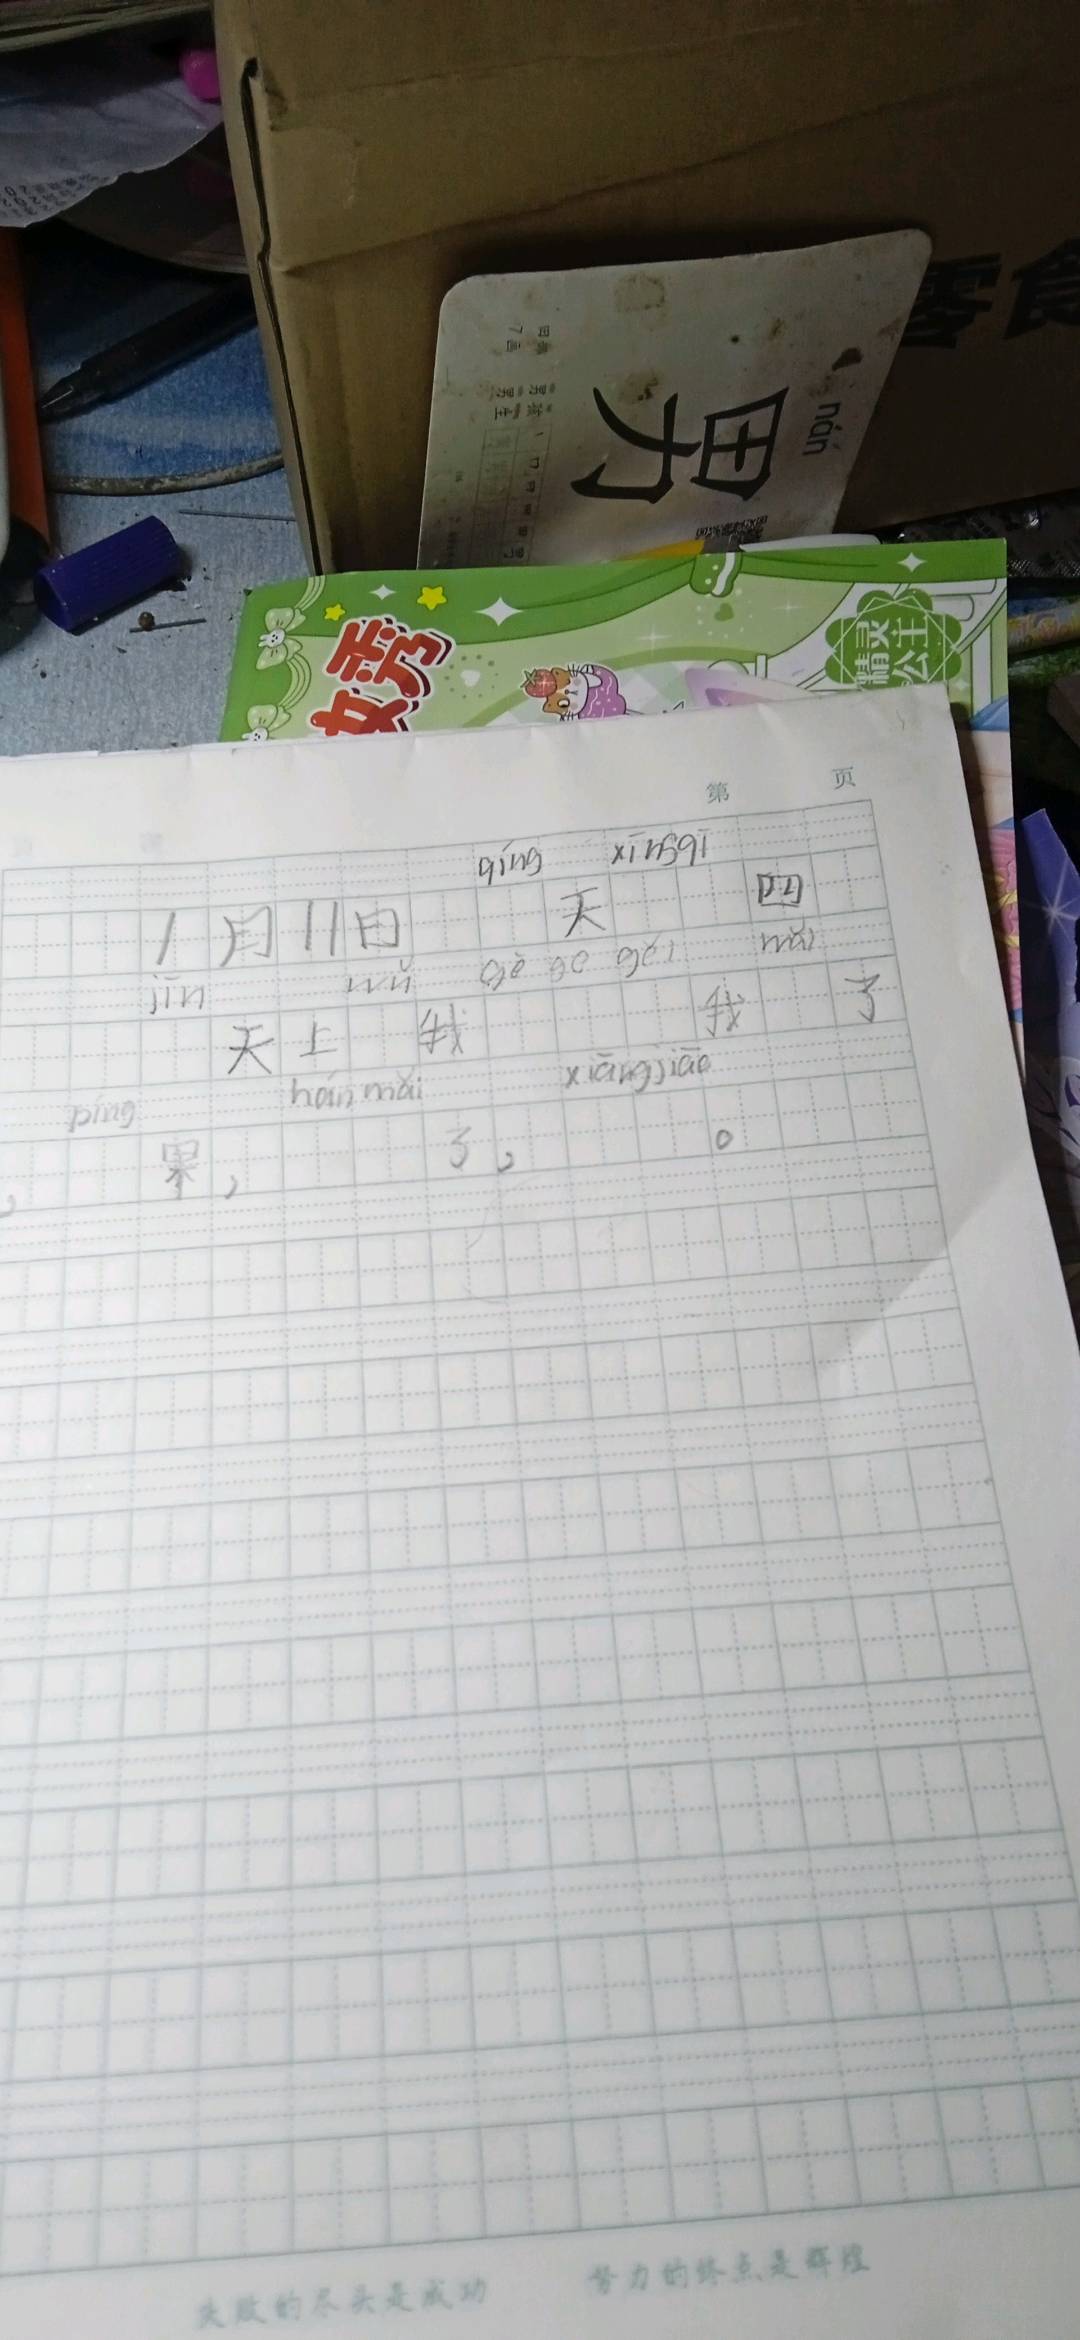 零食
nán
男
精灵
公主
秀
第 页
qíng xīngqī
1月11日 天 四
jīn wǔ gē ge gěi mǎi
天上 我 我 了
píng hái mǎi xiāngjiāo
, 果, 了, 。
失败的尽头是成功 努力的终点是辉煌